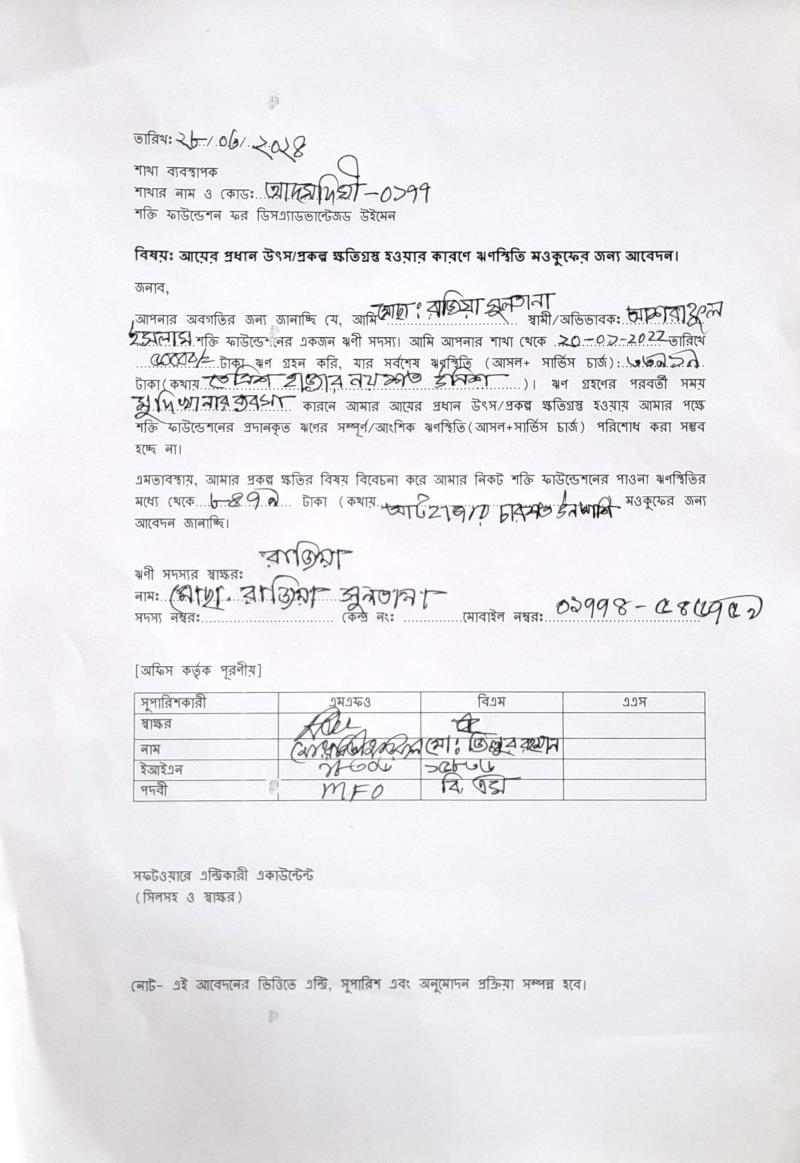 তারিখঃ ২৮/০৬/২০২৪
শাখা ব্যবস্থাপক
শাখার নাম ও কোডঃ আদমদিঘী-০১৭৭
শক্তি ফাউন্ডেশন ফর ডিসএ্যাডভান্টেজড উইমেন
বিষয়ঃ আয়ের প্রধান উৎস/প্রকল্প ক্ষতিগ্রস্ত হওয়ার কারণে ঋণস্থিতি মওকুফের জন্য আবেদন।
জনাব,
আপনার অবগতির জন্য জানাচ্ছি যে, আমি মোছা: রাজিয়া সুলতানা স্বামী/অভিভাবক: আশরাফুল
ইসলাম শক্তি ফাউন্ডেশনের একজন ঋণী সদস্য। আমি আপনার শাখা থেকে ২০-০২-২০২২ তারিখে
৫০০০০/= টাকা ঋণ গ্রহন করি, যার সর্বশেষ ঋণস্থিতি (আসল+ সার্ভিস চার্জ): ৩৩৯১৯
টাকা(কথায় তেত্রিশ হাজার নয়শত উনিশ)। ঋণ গ্রহণের পরবর্তী সময়
মুদিখানার ব্যবসা কারনে আমার আয়ের প্রধান উৎস/প্রকল্প ক্ষতিগ্রস্ত হওয়ায় আমার পক্ষে
শক্তি ফাউন্ডেশনের প্রদানকৃত ঋণের সম্পূর্ণ/আংশিক ঋণস্থিতি(আসল+সার্ভিস চার্জ) পরিশোধ করা সম্ভব
হচ্ছে না।
এমতাবস্থায়, আমার প্রকল্প ক্ষতির বিষয় বিবেচনা করে আমার নিকট শক্তি ফাউন্ডেশনের পাওনা ঋণস্থিতির
মধ্যে থেকে ৮৪৭৯ টাকা (কথায় আটহাজার চারশত উনআশি মওকুফের জন্য
আবেদন জানাচ্ছি।
ঋণী সদস্যর স্বাক্ষরঃ রাজিয়া
নামঃ মোছা. রাজিয়া সুলতানা
সদস্য নম্বরঃ কেন্দ্র নং: মোবাইল নম্বরঃ
[অফিস কর্তৃক পূরণীয়]
সুপারিশকারী এমএফও বিএম এএস
স্বাক্ষর
নাম মো: জিল্লুর রহমান
ইআইএন
পদবী MFO বি, এম
সফটওয়ারে এন্ট্রিকারী একাউন্টেন্ট
(সিলসহ ও স্বাক্ষর)
নোট- এই আবেদনের ভিত্তিতে এন্ট্রি, সুপারিশ এবং অনুমোদন প্রক্রিয়া সম্পন্ন হবে।